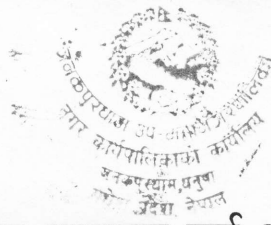 जनकपुरधाम उप-महानगरपालिका
नगर कार्यपालिकाको कार्यालय
जनकपुरधाम, धनुषा
प्रदेश नेपाल